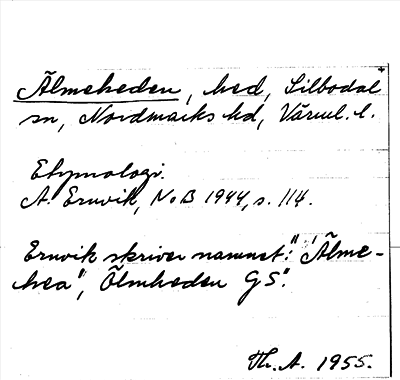 Älmeheden, hed, Silbodal
sn, Nordmarks hd, Värml. l.
Etymologi.
A. Ernvik, NoB 1944, s. 114.
Ernvik skriver namnet: "Älme-
hea", Ölmheden GS".
Th. A. 1955.